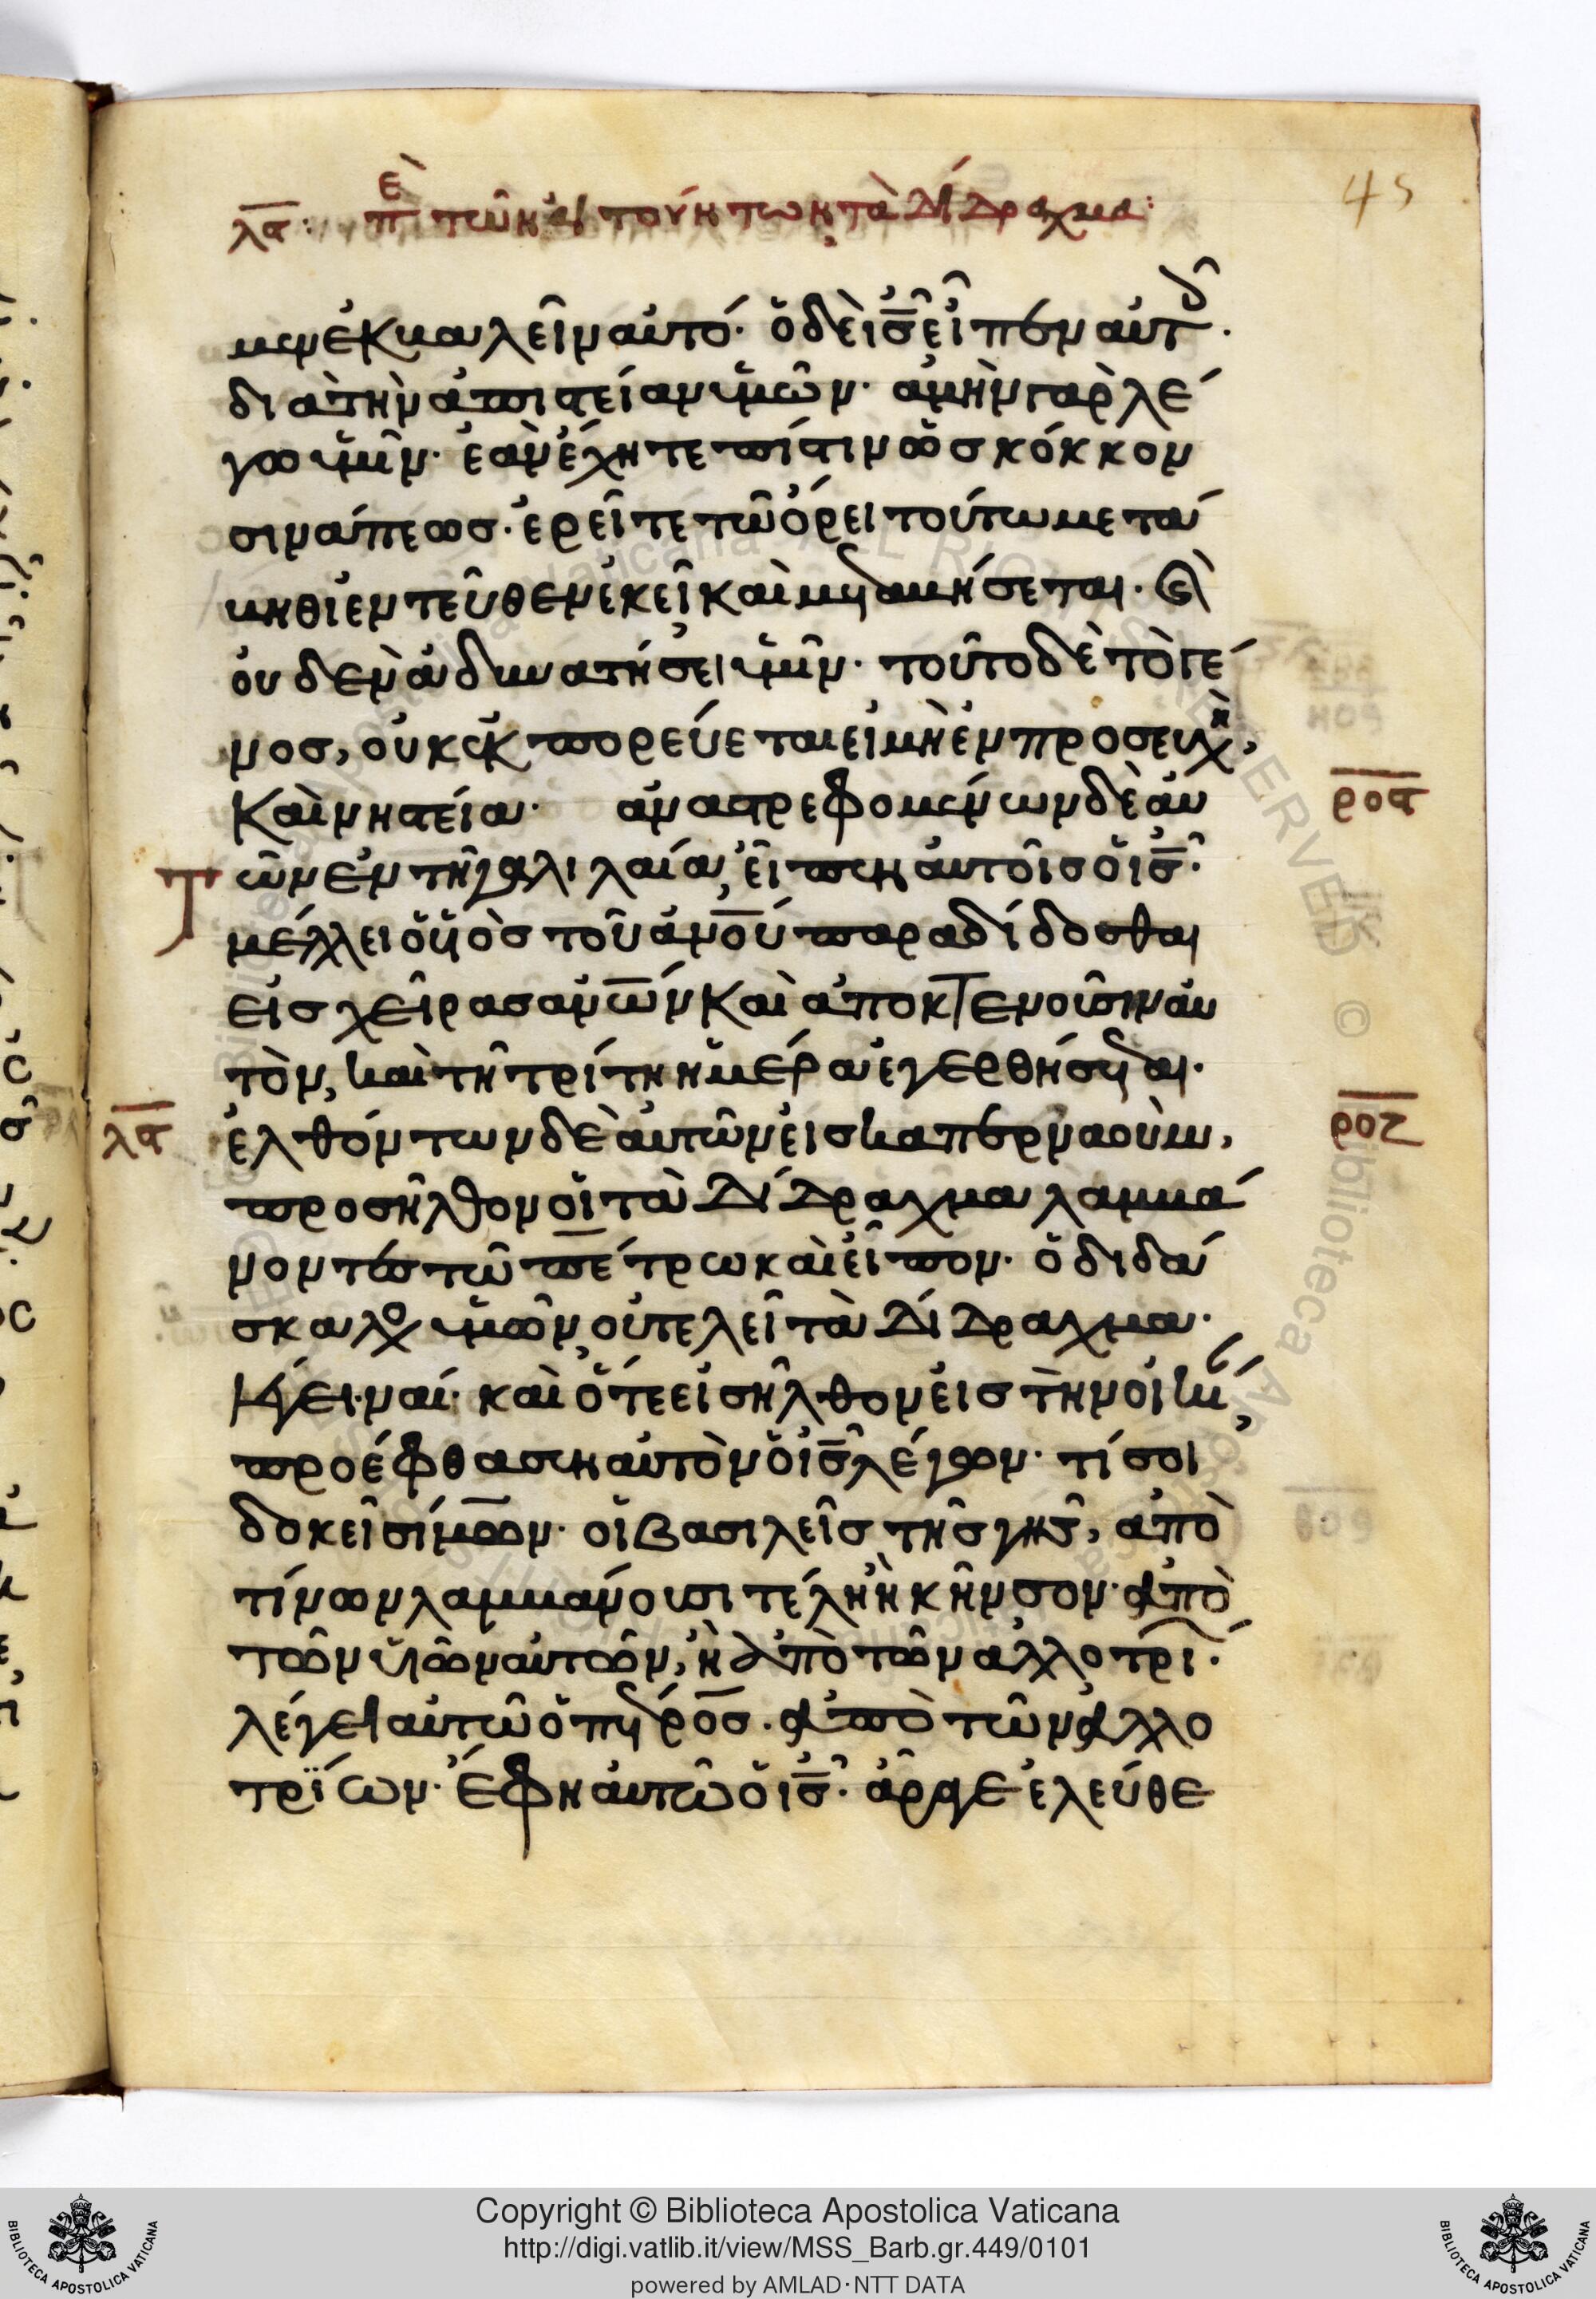 45
λα: ἐπὶ τῶν αἰτούντων τὰ δίδραχμα:
μεν ἐκβαλεῖν αὐτό· ὁ δὲ ι̅ς̅ εἶπεν αὐτοῖς·
διὰ τὴν ἀπιστείαν ὑμῶν· ἀμὴν γὰρ λέ
γω ὑμῖν· ἐὰν ἔχητε πίστιν ὡς κόκκον
σινάπεως· ἐρεῖτε τῶ ὄρει τούτω μετά
βηθι ἐντεῦθεν ἐκεῖ καὶ μεταβήσεται· καὶ
οὐδὲν ἀδυνατήσει ὑμῖν· τοῦτο δὲ τὸ γέ
νος, οὐκ ἐκπορεύεται εἰ μὴ ἐν προσευχῆ,
καὶ νηστεία· ἀναστρεφομένων δὲ αὐ
ροα
τῶν ἐν τῆ γαλιλαία, εἶπεν αὐτοῖς ὁ ι̅ς̅·
μέλλει ὁ υἱὸς τοῦ α̅ν̅ο̅υ̅ παραδίδοσθαι
εἰς χεῖρας α̅ν̅ω̅ν̅ καὶ ἀποκτενοῦσιν αὐ
τόν, καὶ τῆ τρίτη ἡμέρα ἐγερθήσεται·
λα
ἐλθόντων δὲ αὐτῶν εἰς καπερναούμ,
ροζ
προσῆλθον οἱ τὰ δίδραχμα λαμβά
νοντες τῶ πέτρω καὶ εἶπον· ὁ διδά
σκαλος ὑμῶν οὐ τελεῖ τὰ δίδραχμα·
λέγει· ναί· καὶ ὅτε εἰσῆλθον εἰς τὴν οἰκίαν,
προέφθασεν αὐτὸν ὁ ι̅ς̅ λέγων· τί σοι
δοκεῖ σίμων· οἱ βασιλεῖς τῆς γῆς, ἀπὸ
τίνων λαμβάνουσι τέλη ἢ κῆνσον· ἀπὸ
τῶν υἱῶν αὐτῶν, ἢ ἀπὸ τῶν ἀλλοτρίων·
λέγει αὐτῶ ὁ πέτρος· ἀπὸ τῶν ἀλλο
τρίων· ἔφη αὐτῶ ὁ ι̅ς̅· ἄραγε ἐλεύθε
Copyright © Biblioteca Apostolica Vaticana
http://digi.vatlib.it/view/MSS_Barb.gr.449/0101
powered by AMLAD·NTT DATA
BIBLIOTECA APOSTOLICA VATICANA
BIBLIOTECA APOSTOLICA VATICANA